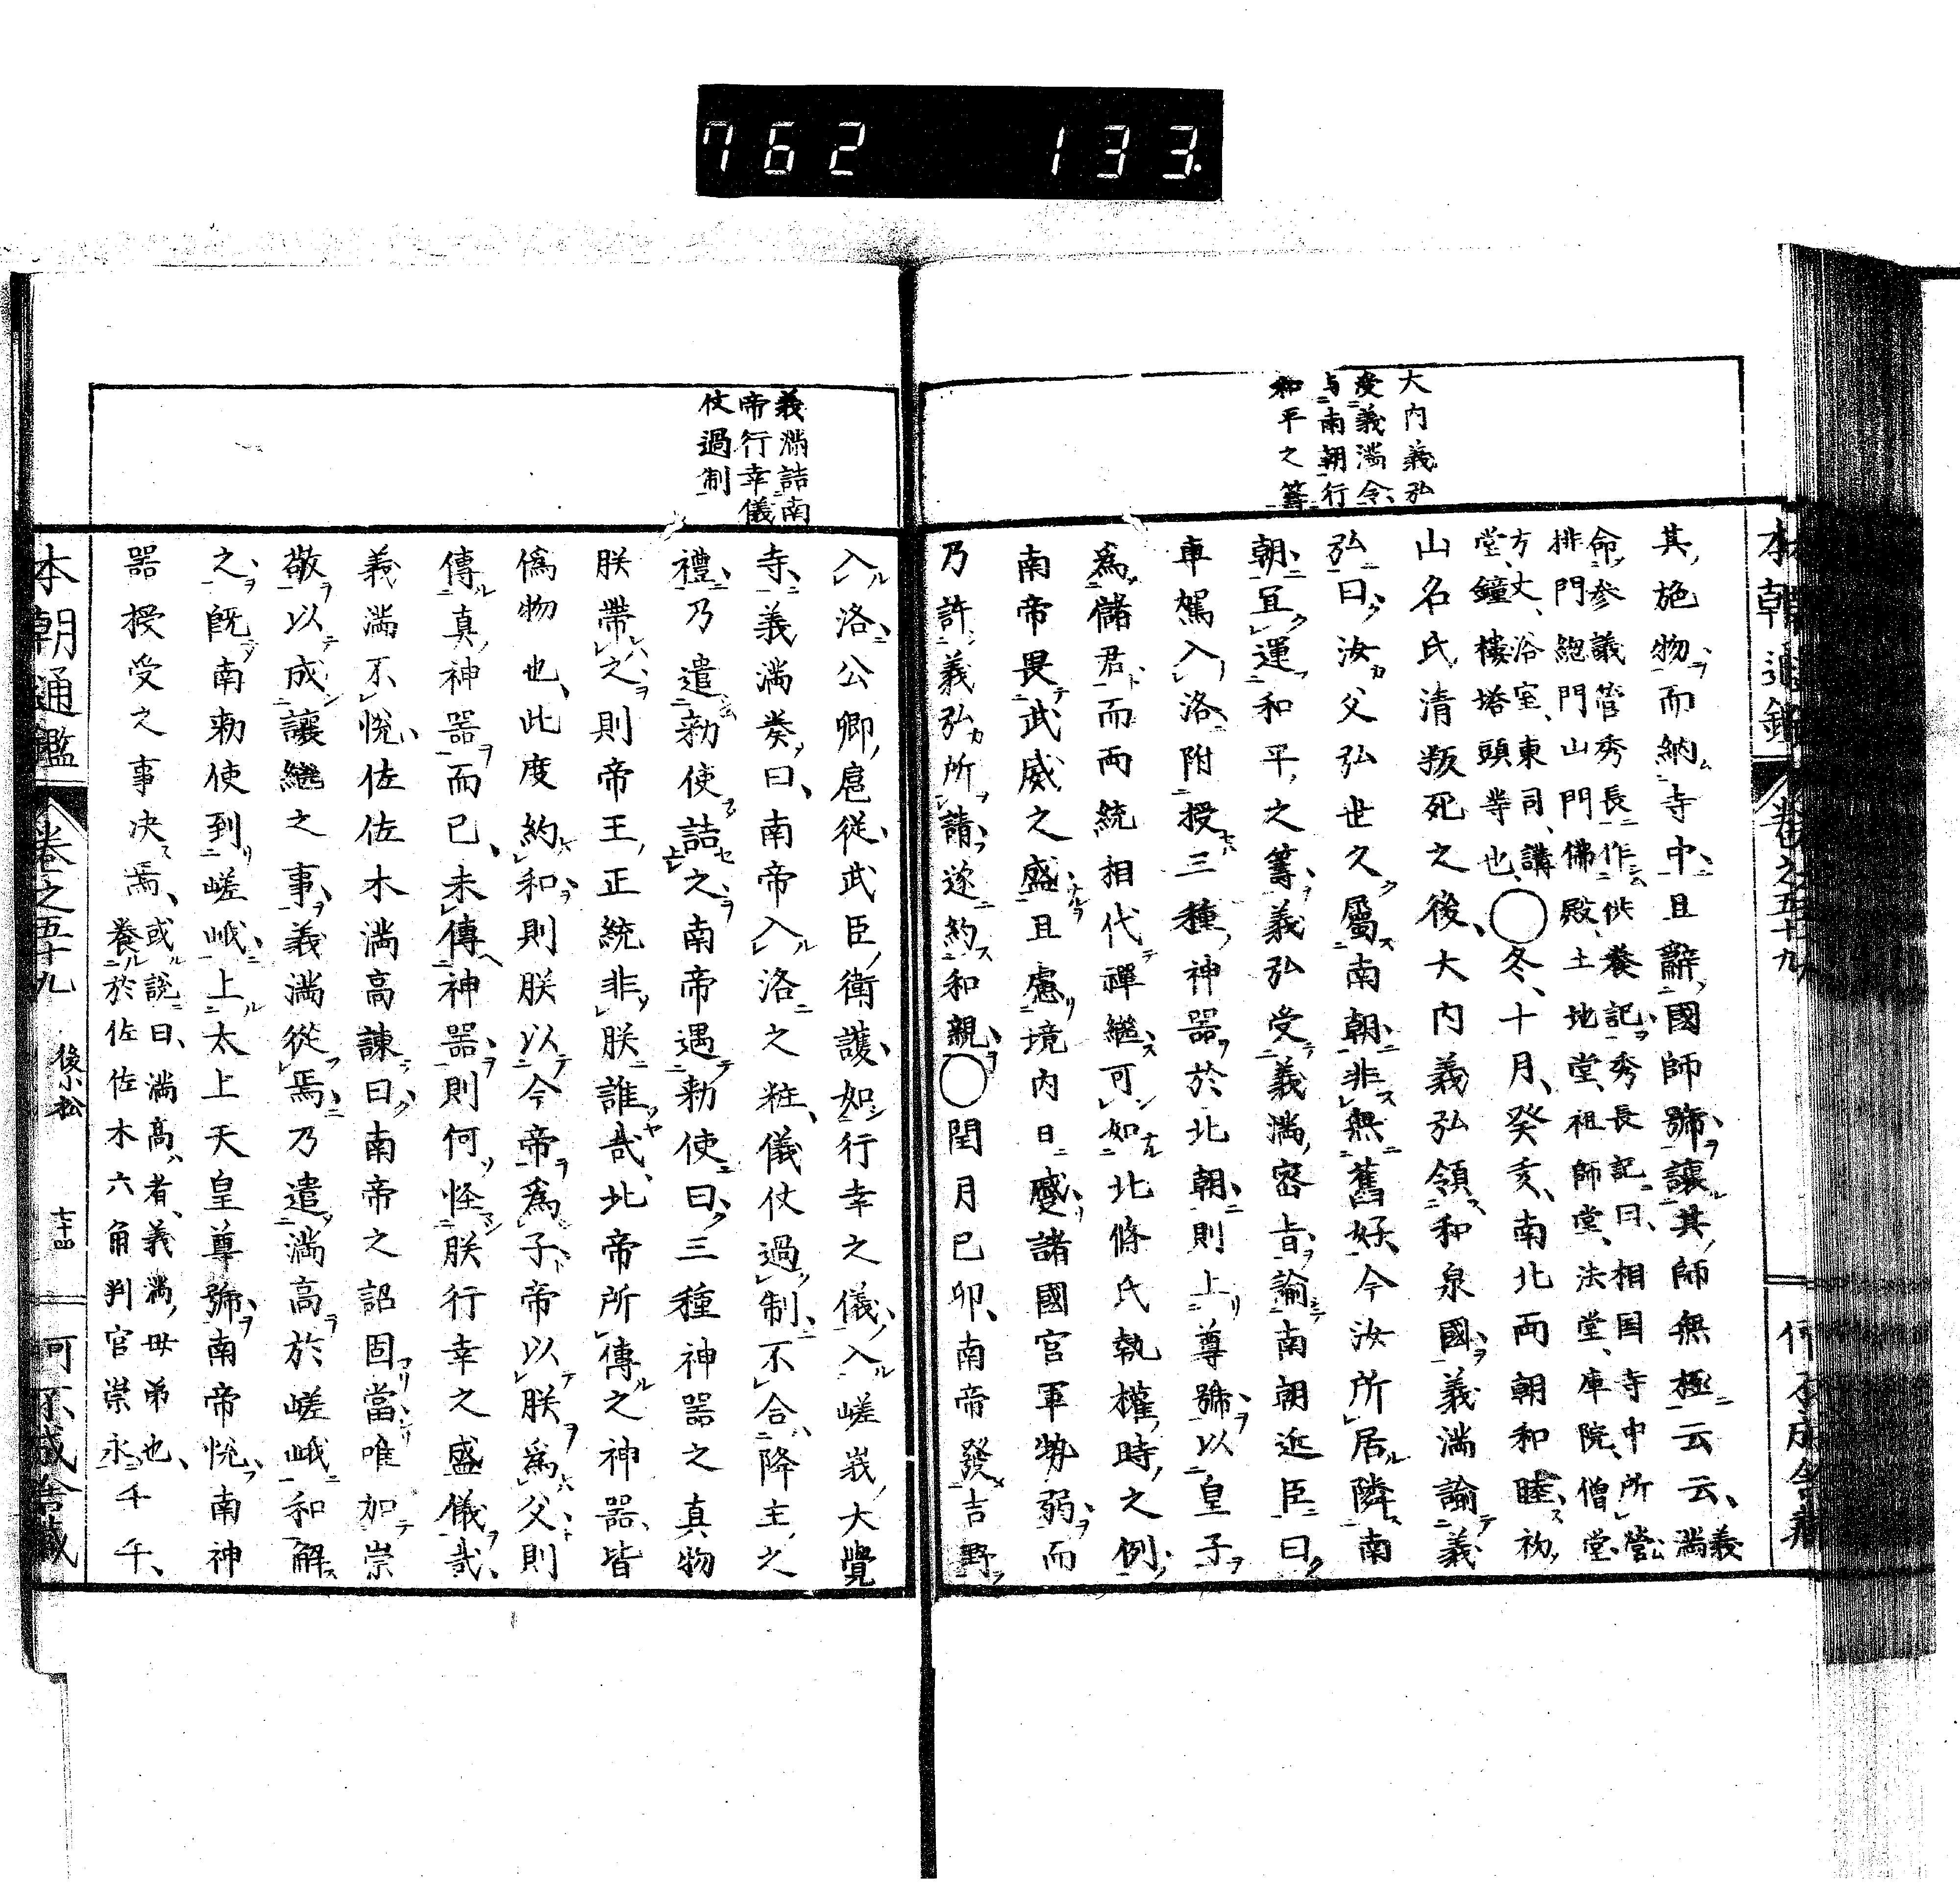 762 133
大内義弘
受義満令
与南朝行
和平之籌
其施物而納寺中且辭國師號讓其師無極云云義満
命参議菅秀長作供養記秀長記曰相国寺中所営
排門総門山門佛殿土地堂祖師堂法堂庫院僧堂
方丈浴室東司講
堂鐘樓塔頭等也○冬十月癸亥南北両朝和睦初
山名氏清叛死之後大内義弘領和泉國義満諭義
弘曰汝父弘世久屬南朝非無舊好今汝所居隣南
朝宜運和平之籌義弘受義満密旨諭南朝近臣曰
車駕入洛附授三種神器於北朝則上尊號以皇子
為儲君而両統相代禪繼可如北條氏執權時之例
南帝畏武威之盛且慮境内日蹙諸國官軍勢弱而
乃許義弘所請遂約和親○閏月己卯南帝發吉野
義満詰南
帝行幸儀
仗過制
入洛公卿扈從武臣衛護如行幸之儀入嵯峩大覺
寺義満奏曰南帝入洛之粧儀仗過制不合降主之
禮乃遣勅使詰之南帝遇勅使曰三種神器之真物
朕帶之則帝王正統非朕誰哉北帝所傳之神器皆
偽物也此度約和則朕以今帝為子帝以朕為父則
傳真神器而已未傳神器則何怪朕行幸之盛儀哉
義満不悦佐佐木満高諫曰南帝之詔固當唯加崇
敬以成讓繼之事義満從焉乃遣満高於嵯峨和解
之既南勅使到嵯峨上太上天皇尊號南帝悦南神
器授受之事決焉或説曰満高者義満母弟也
養於佐佐木六角判官崇永千千
本朝通鑑 巻之五十九 後小松 七十四